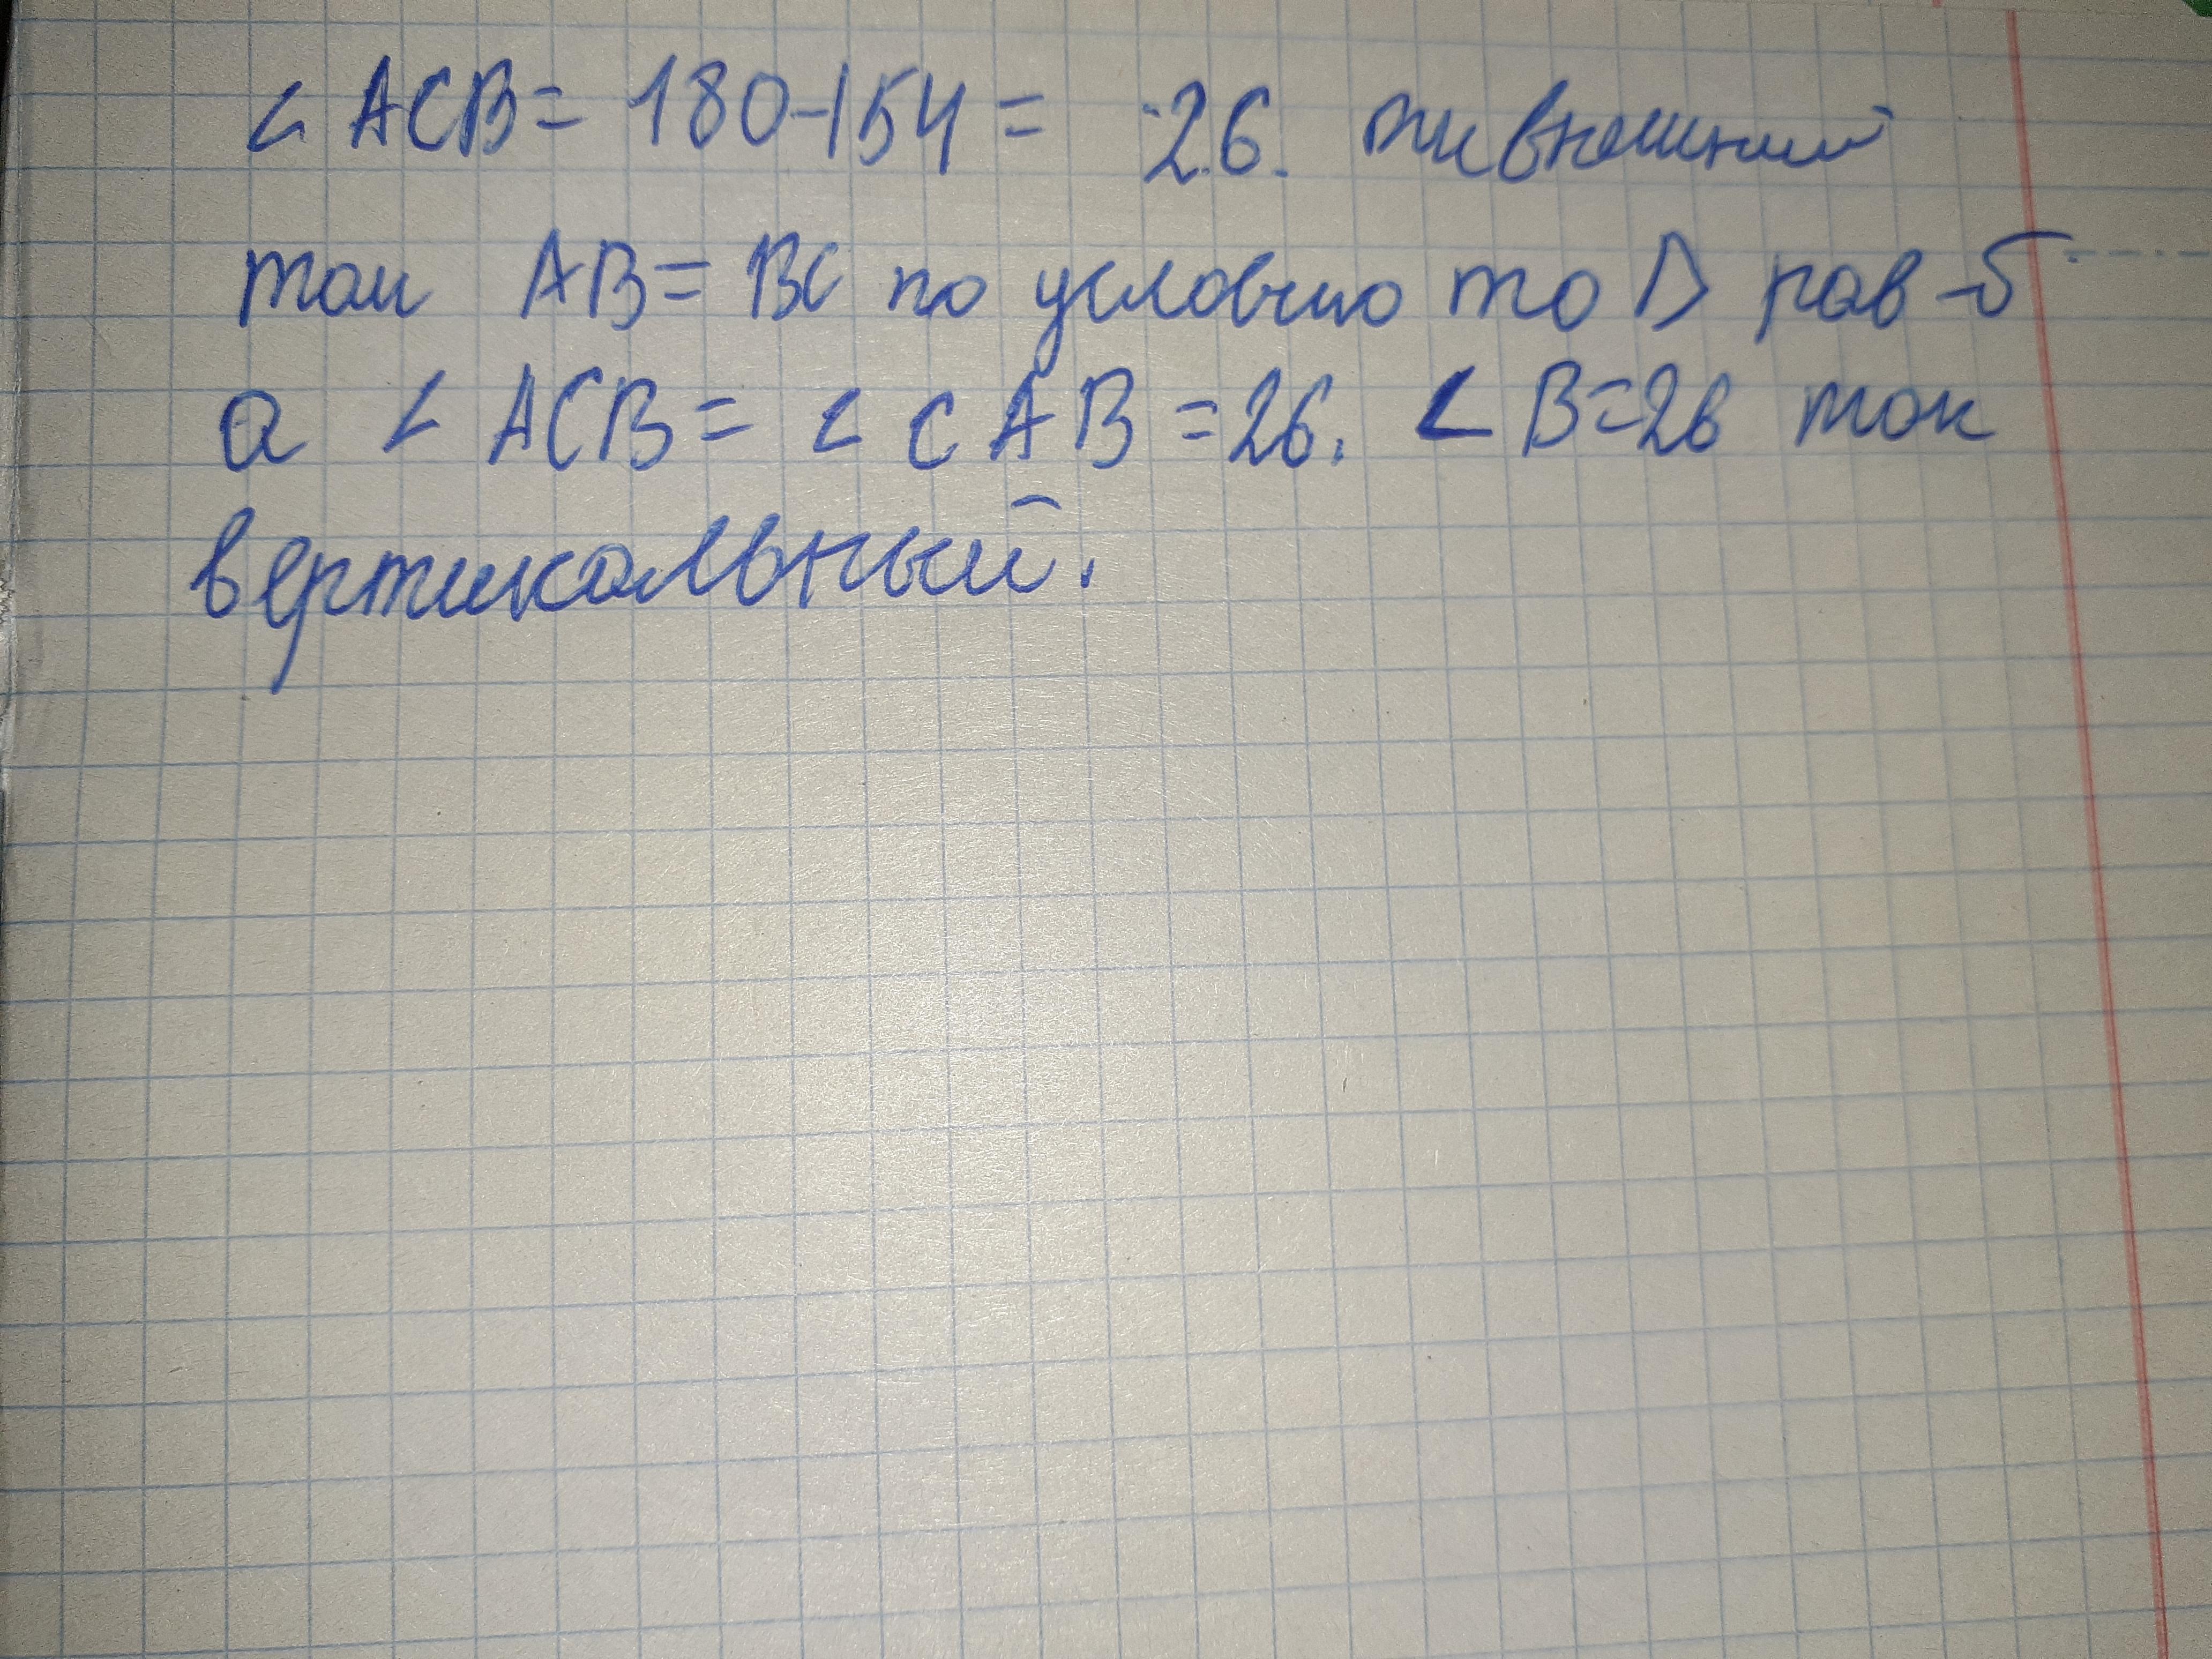 ∠ ACB = 180-154 = 26. внешний
так AB = BC по условию то △ рав-б
а ∠ ACB = ∠ CAB = 26. ∠ B=26 так
вертикальный.